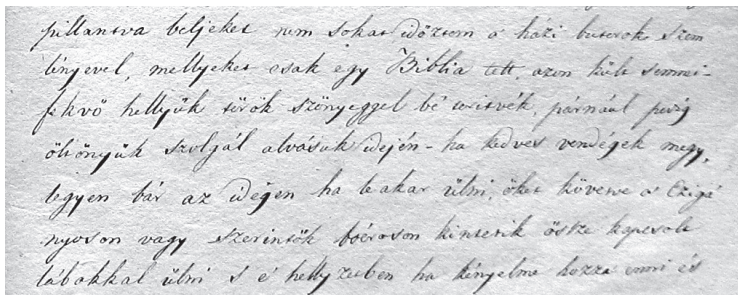 pillantva beljeket nem sokat időztem a' házi butorok szem
lényevel, mellyeket csak egy Biblia tett, azon kivül semmi-
fekvő hellyük török szőnyeggel bé teritvék, párnául pedig
öltönyük szolgál alvásuk idején - ha kedves vendégek megy,
legyen bár az idegen ha le akar ülni, őket követve a' Czigá
nyoson vagy szerintök boéroson kintetik össze kapcsolt
lábakkal ülni s e' hellyzetben ha kényelme hozza enni és